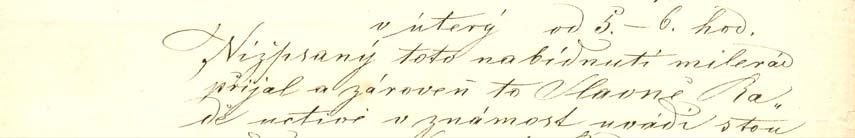 v úterý od 5.–6. hod.
Nížpsaný toto nabídnutí milerád
přijal a zároveň to Slavné Ra„
dě uctivě v známost uvádí s tou